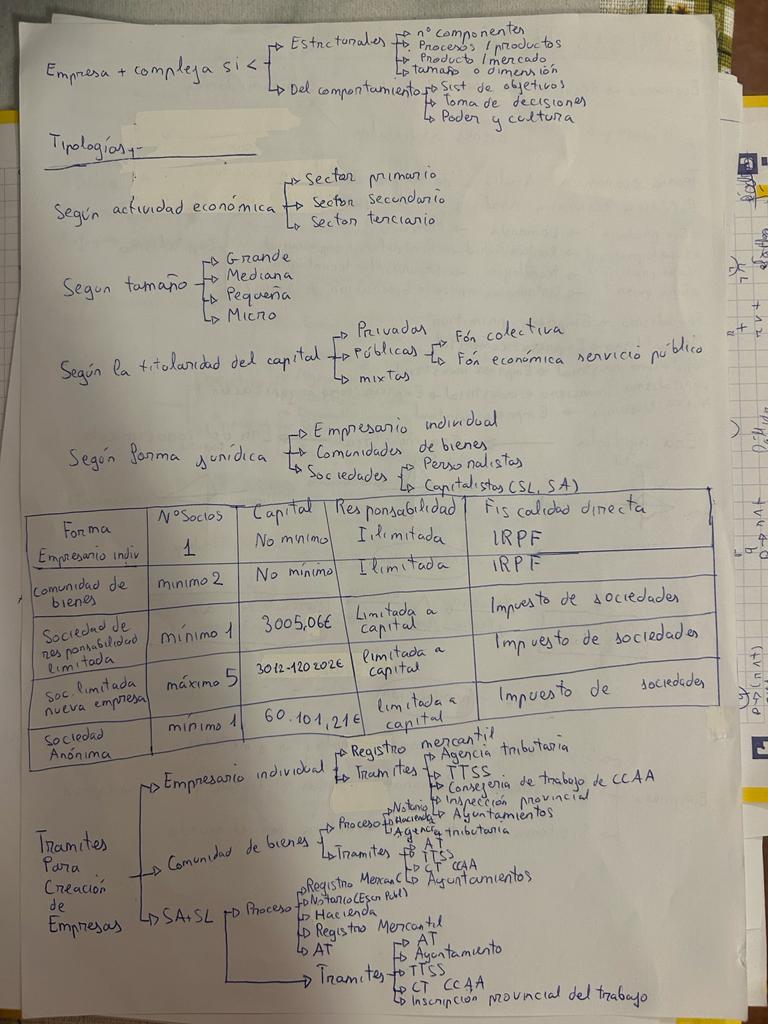 Empresa + compleja si <
Estructurales
nº componentes
Procesos / productos
Producto / mercado
tamaño o dimensión
Del comportamiento
Sist de objetivos
Toma de decisiones
Poder y cultura
Tipologías,-
Según actividad económica
Sector primario
Sector secundario
Sector terciario
Según tamaño
Grande
Mediana
Pequeña
Micro
Según la titularidad del capital
Privadas
Públicas
Fón colectiva
Fón económica servicio público
mixtas
Según forma jurídica
Empresario individual
Comunidades de bienes
Sociedades
Personalistas
Capitalistas (SL, SA)
Forma Nº Socios Capital Responsabilidad Fiscalidad directa
Empresario indiv 1 No mínimo Ilimitada IRPF
Comunidad de bienes mínimo 2 No mínimo Ilimitada IRPF
Sociedad de responsabilidad limitada mínimo 1 3005,06€ Limitada a capital Impuesto de sociedades
Soc. limitada nueva empresa máximo 5 3012-120202€ limitada a capital Impuesto de sociedades
Sociedad Anónima mínimo 1 60.101,21€ limitada a capital Impuesto de sociedades
Tramites
Para
Creación
de
Empresas
Empresario individual
Registro mercantil
Tramites
Agencia tributaria
TTSS
Consejeria de trabajo de CCAA
Inspección provincial
Ayuntamientos
Comunidad de bienes
Proceso
Notario
Hacienda
Agencia tributaria
Tramites
AT
TTSS
CT CCAA
Ayuntamientos
SA+SL
Proceso
Registro Mercanc
Notario (Escr Publ)
Hacienda
Registro Mercantil
AT
Tramites
AT
Ayuntamiento
TTSS
CT CCAA
Inscripción provincial del trabajo